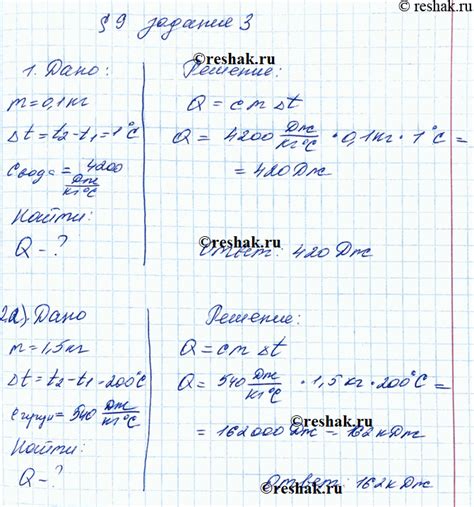 ©reshak.ru
§ 9 задание 3
©reshak.ru
1. Дано:
m = 0,1 кг
Δt = t₂ – t₁ = 1°C
c вода = 4200 Дж/кг°C
Найти:
Q – ?
Решение:
Q = c m Δt
Q = 4200 Дж/кг°C · 0,1 кг · 1°C =
= 420 Дж
©reshak.ru
Ответ: 420 Дж
2а) Дано
m = 1,5 кг
Δt = t₂ – t₁ = 200°C
= 540 Дж/кг°C
Найти:
Q – ?
Решение:
Q = c m Δt
Q = 540 Дж/кг°C · 1,5 кг · 200°C =
©reshak.ru
= 162000 Дж = 162 кДж
Ответ: 162 кДж
©reshak.ru